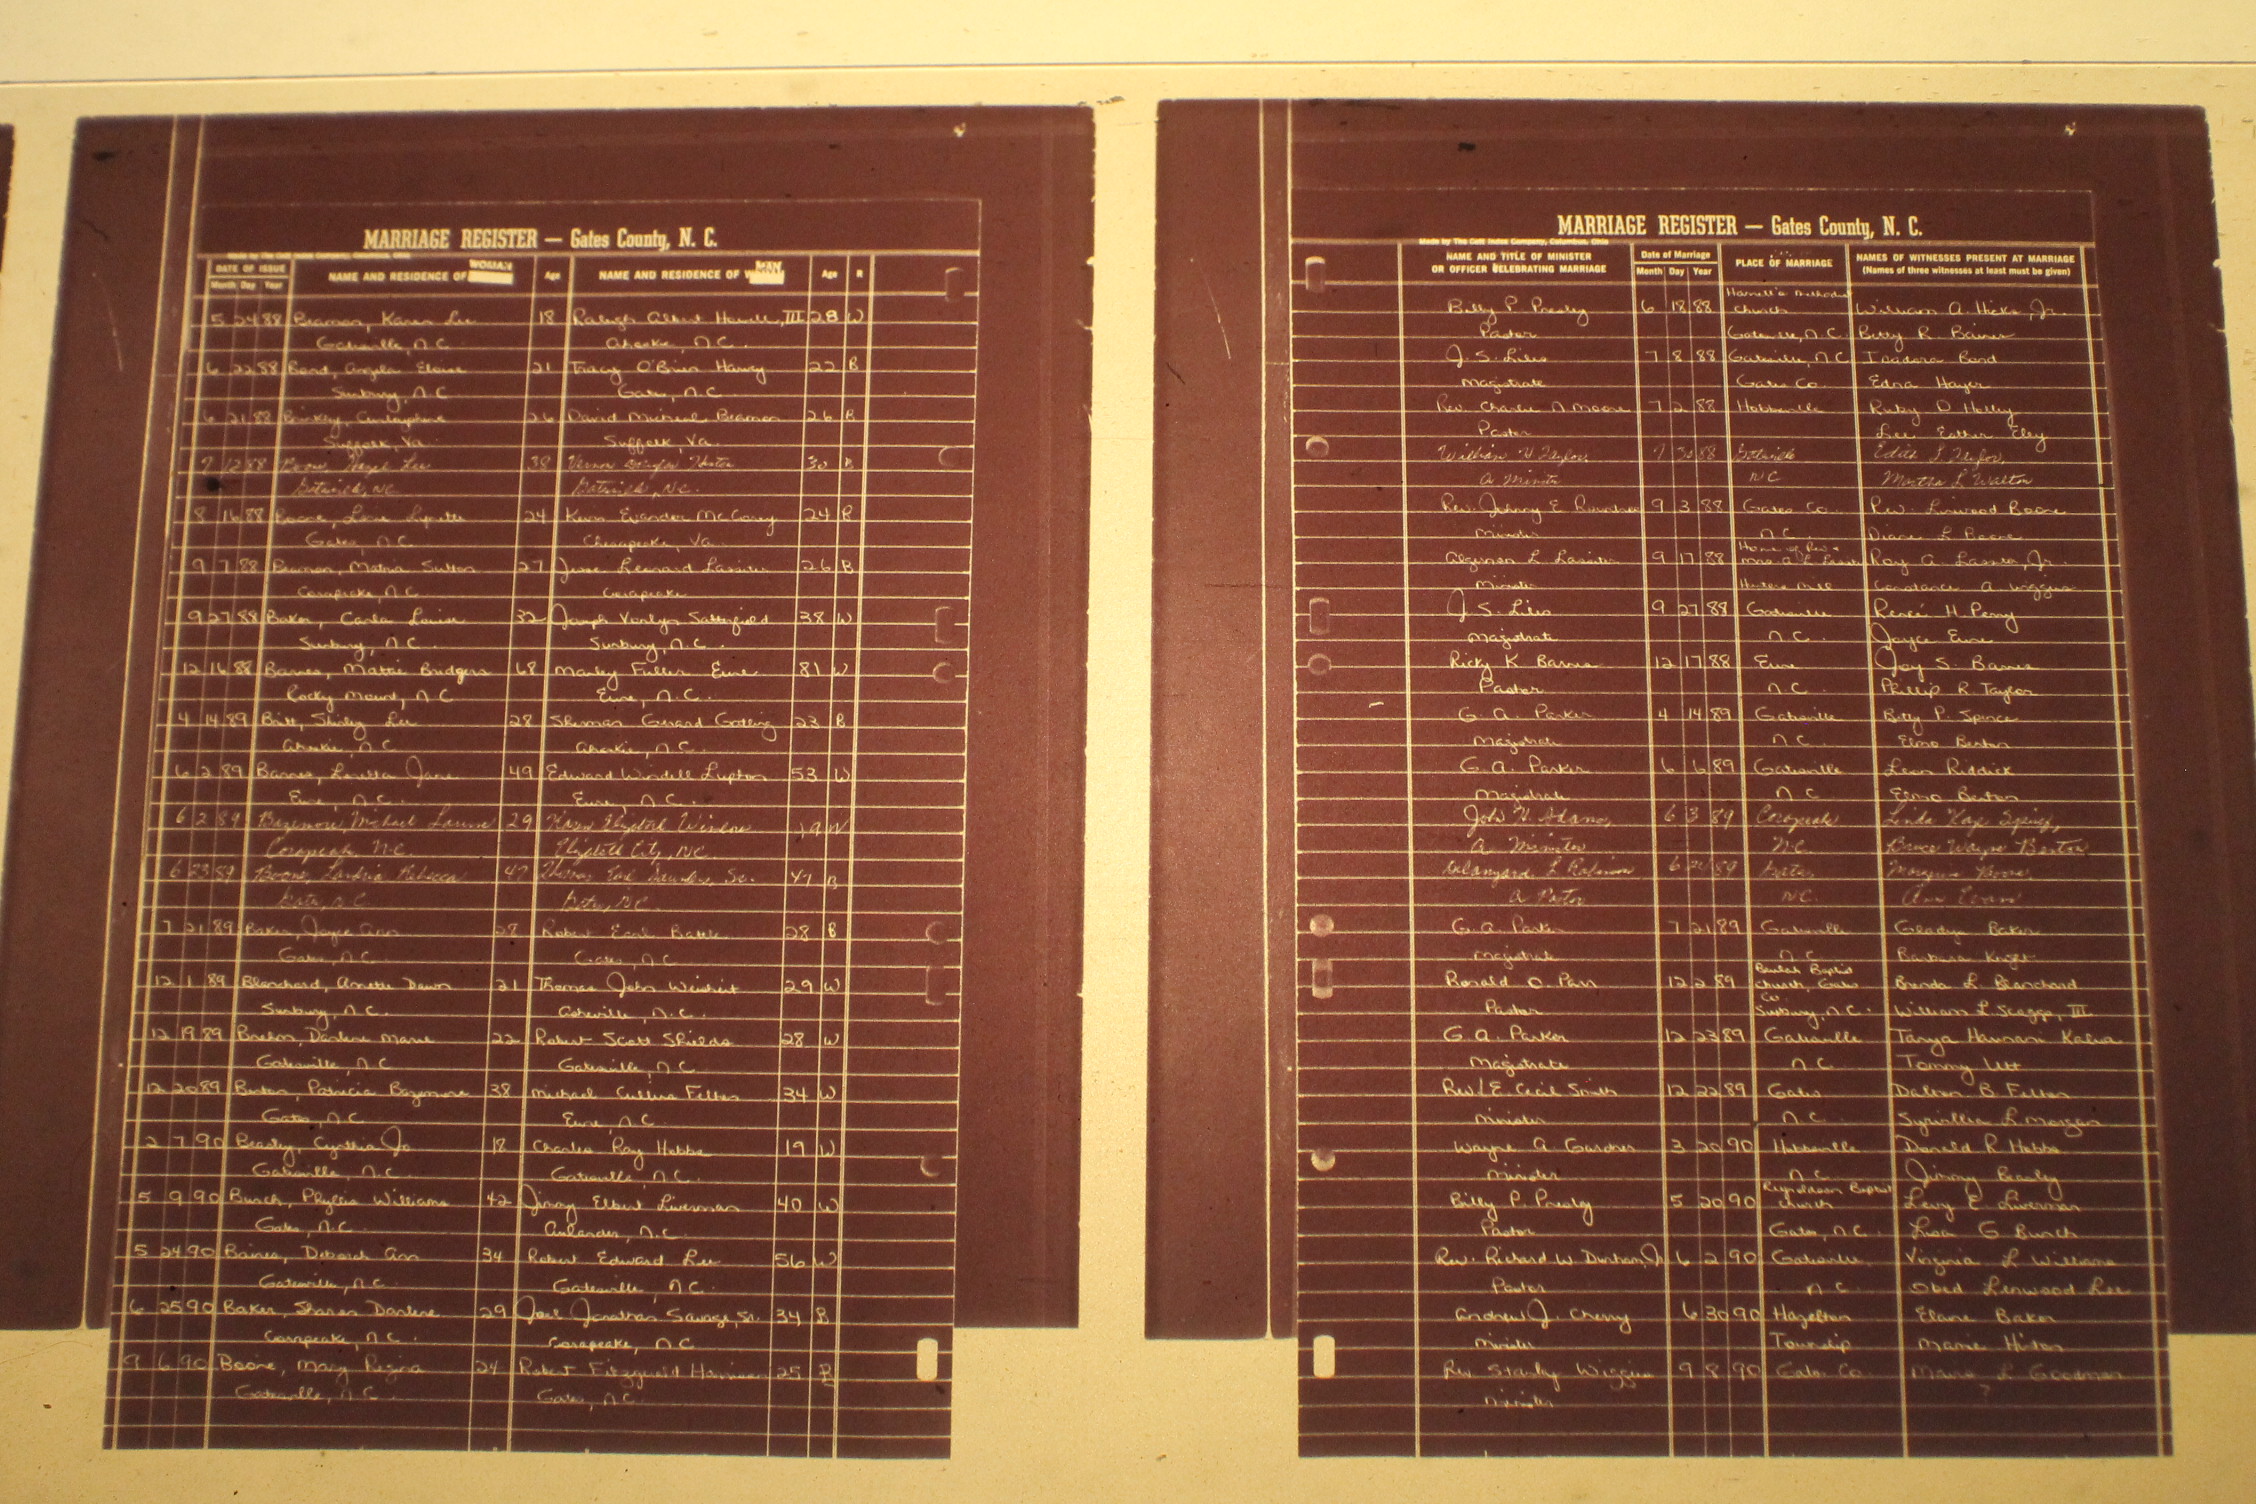 MARRIAGE REGISTER — Gates County, N. C.
DATE OF ISSUE NAME AND RESIDENCE OF WOMAN Age NAME AND RESIDENCE OF MAN Age R
Month Day Year
5 24 88 Beaman, Karen Lee 18 Raleigh Albert Howell, III 28 W
Gatesville, N.C. Ahoskie, N.C.
6 22 88 Bond, Angela Elaine 21 Tracy O'Brien Harvey 22 B
Sunbury, N.C Gates, N.C
6 21 88 Brinkley, 26 David Micheal Beamon 26 B
Suffolk, Va. Suffolk, Va
7 12 88 Hazel Lee 38 Vernon Douglas 30 B
Gatesville, NC Gatesville, N.C.
8 16 88 Boone, Lynette 24 Kevin Evander McCorey 24 B
Gates, N.C Chesapeake, Va.
9 7 88 Beamon, Matria Sutton 27 Jesse Leonard Lassiter 26 B
Corapeake, N.C Corapeake
9 27 88 Baker, Carla Louise 32 Joseph Verlyn Satterfield 38 W
Sunbury, N.C. Sunbury, N.C.
12 16 88 Barnes, Mattie Bridgers 68 Manley Fuller Eure 81 W
Rocky Mount, N.C Eure, N.C.
4 14 89 Britt, Shirley Lee 28 Sherman Gerard Gatling 23 B
Ahoskie, N.C Ahoskie, N.C.
6 2 89 Barnes, Loretta Jane 49 Edward Windell Lupton 53 W
Eure, N.C. Eure, N.C.
6 2 89 Bazemore, Michael 29 Karen Elizabeth Winslow 19 W
Corapeake, N.C. Elizabeth City, N.C.
6 23 89 Boone, Rebecca 47 Thomas Earl Saunders, Sr. 47 B
Gates, N.C Gates, N.C.
7 21 89 Baker, Joyce Ann 28 Robert Earl Battle 28 B
Gates, N.C. Gates, N.C
12 1 89 Blanchard, Annette Dawn 21 Thomas John 29 W
Sunbury, N.C. Asheville, N.C.
12 19 89 Darlene Marie 22 Robert Scott Shields 28 W
Gatesville, N.C. Gatesville, N.C
12 20 89 Benton, Patricia Bazemore 38 Michael Cullens Felton 34 W
Gates, N.C Eure, N.C.
2 7 90 Beasley, Cynthia Jo 18 Charles Ray Hobbs 19 W
Gatesville, N.C. Gatesville, N.C.
5 9 90 Bunch, Phyllis Williams 42 Jimmy Elbert Liverman 40 W
Gates, N.C. Aulander, N.C.
5 24 90 Baines, Deborah Ann 34 Robert Edward Lee 56 W
Gatesville, N.C. Gatesville, N.C.
6 25 90 Baker, Sharon Darlene 29 Joel Jonathan Savage, Sr. 34 B
Corapeake, N.C. Corapeake, N.C
9 6 90 Boone, Mary Regina 24 Robert Fitzgerald Harrison 25 B
Gatesville, N.C. Gates, N.C.
MARRIAGE REGISTER — Gates County, N. C.
Made by The Cott Index Company, Columbus, Ohio
NAME AND TITLE OF MINISTER OR OFFICER CELEBRATING MARRIAGE Date of Marriage PLACE OF MARRIAGE NAMES OF WITNESSES PRESENT AT MARRIAGE
Month Day Year (Names of three witnesses at least must be given)
Harrell's Methodist
Billy P. Presley 6 18 88 Church William A. Hicks, Jr.
Pastor Gatesville, N.C. Betty R. Baines
J. S. Liles 7 8 88 Gatesville, N.C Isadora Bond
Magistrate Gates Co. Edna Hayes
Rev. Charlie N Moore 7 2 88 Hobbsville Ruby D Holley
Pastor Lee Esther Eley
William H Taylor 7 30 88 Gatesville Edith L Taylor
A Minister NC Martha L Walton
Rev. Johnny E. Roundtree 9 3 88 Gates Co. Rev. Linwood Boone
Minister N.C Diane L Boone
Home of Rev &
Algernon L Lassiter 9 17 88 Mrs A L Lassiter Roy A. Lassiter, Jr.
Minister Hunters Mill Constance A Wiggins
J. S. Liles 9 27 88 Gatesville Reneé H. Perry
Magistrate N.C. Joyce Eure
Ricky K Barnes 12 17 88 Eure Joy S. Barnes
Pastor N.C. Phillip R Taylor
G. A. Parker 4 14 89 Gatesville Billy P. Spence
Magistrate N.C. Elmo Benton
G. A. Parker 6 6 89 Gatesville Leon Riddick
Magistrate N C Elmo Benton
John H. Adams 6 3 89 Corapeake Linda Kaye
A Minister N.C. Bruce Wayne Benton
L Robinson 6 24 89 Gates Boone
A Pastor N.C. Ann Evans
G. A. Parker 7 21 89 Gatesville Gladys Baker
Magistrate N.C Barbara Knight
Beulah Baptist
Ronald O. Parr 12 2 89 Church, Gates Co Brenda L. Blanchard
Pastor Sunbury, N.C. William L Scaggs, III
G. A. Parker 12 23 89 Gatesville Tanya
Magistrate N.C. Tommy
Rev L.E. Cecil Smith 12 22 89 Gates Dalton B Felton
Minister N.C. L Morgan
Wayne A. Gardner 3 20 90 Hobbsville Donald R Hobbs
Minister N.C. Jimmy Beasley
Reynoldson Baptist
Billy P. Presley 5 20 90 Church Levy E Liverman
Pastor Gates, N.C. Lisa G Bunch
Rev. Richard W. Dunham, Jr 6 2 90 Gatesville Virginia L Williams
Pastor N.C. Obed Linwood Lee
Andrew J. Cherry 6 30 90 Hazelton Elaine Baker
Minister Township Mamie Hinton
Rev Stanley Wiggins 9 8 90 Gates Co. L Goodman
Minister ?